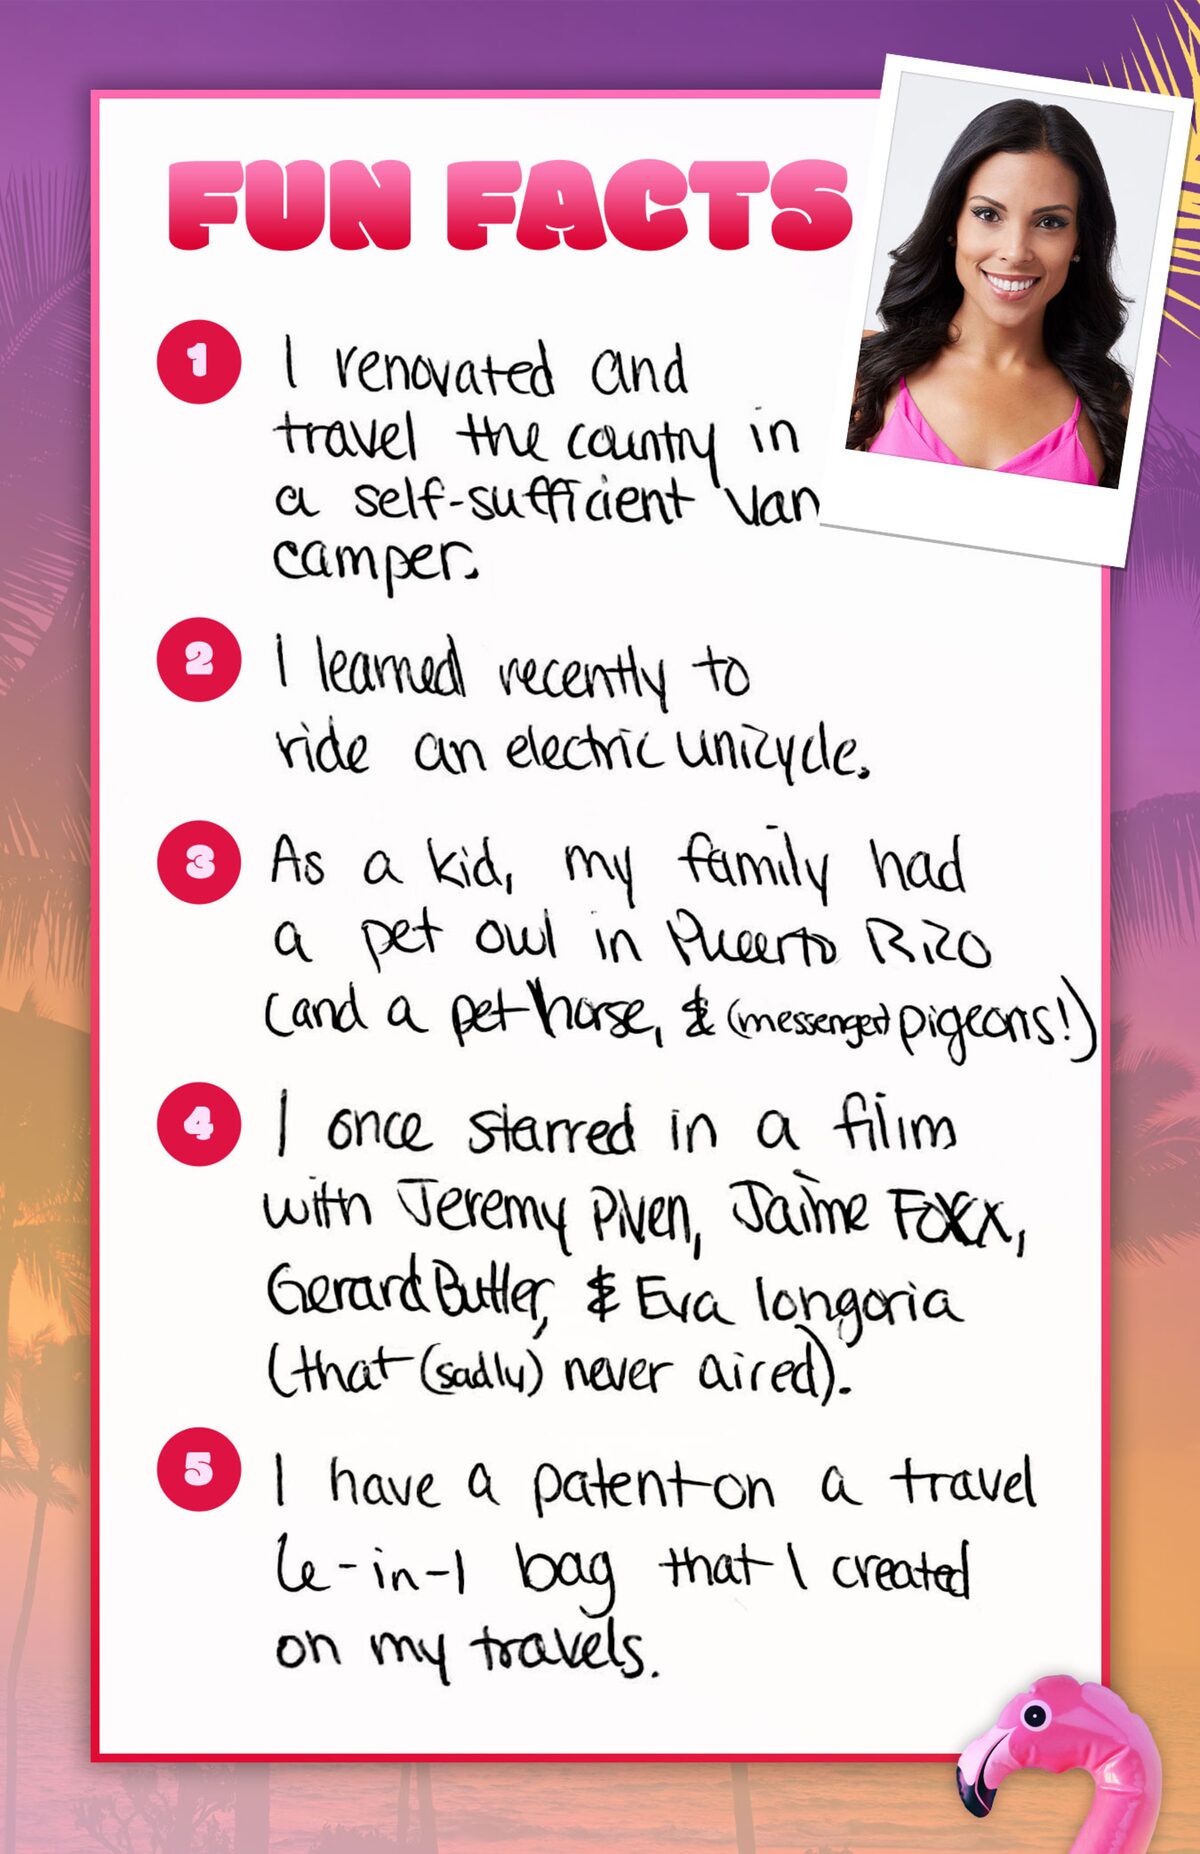 FUN FACTS
1 I renovated and
travel the country in
a self-sufficient van
camper.
2 I learned recently to
ride an electric unicycle.
3 As a kid, my family had
a pet owl in Puerto Rico
(and a pet horse, & (messenger) pigeons!)
4 I once starred in a film
with Jeremy Piven, Jaime Foxx,
Gerard Butler, & Eva longoria
(that (sadly) never aired).
5 I have a patent on a travel
6-in-1 bag that I created
on my travels.